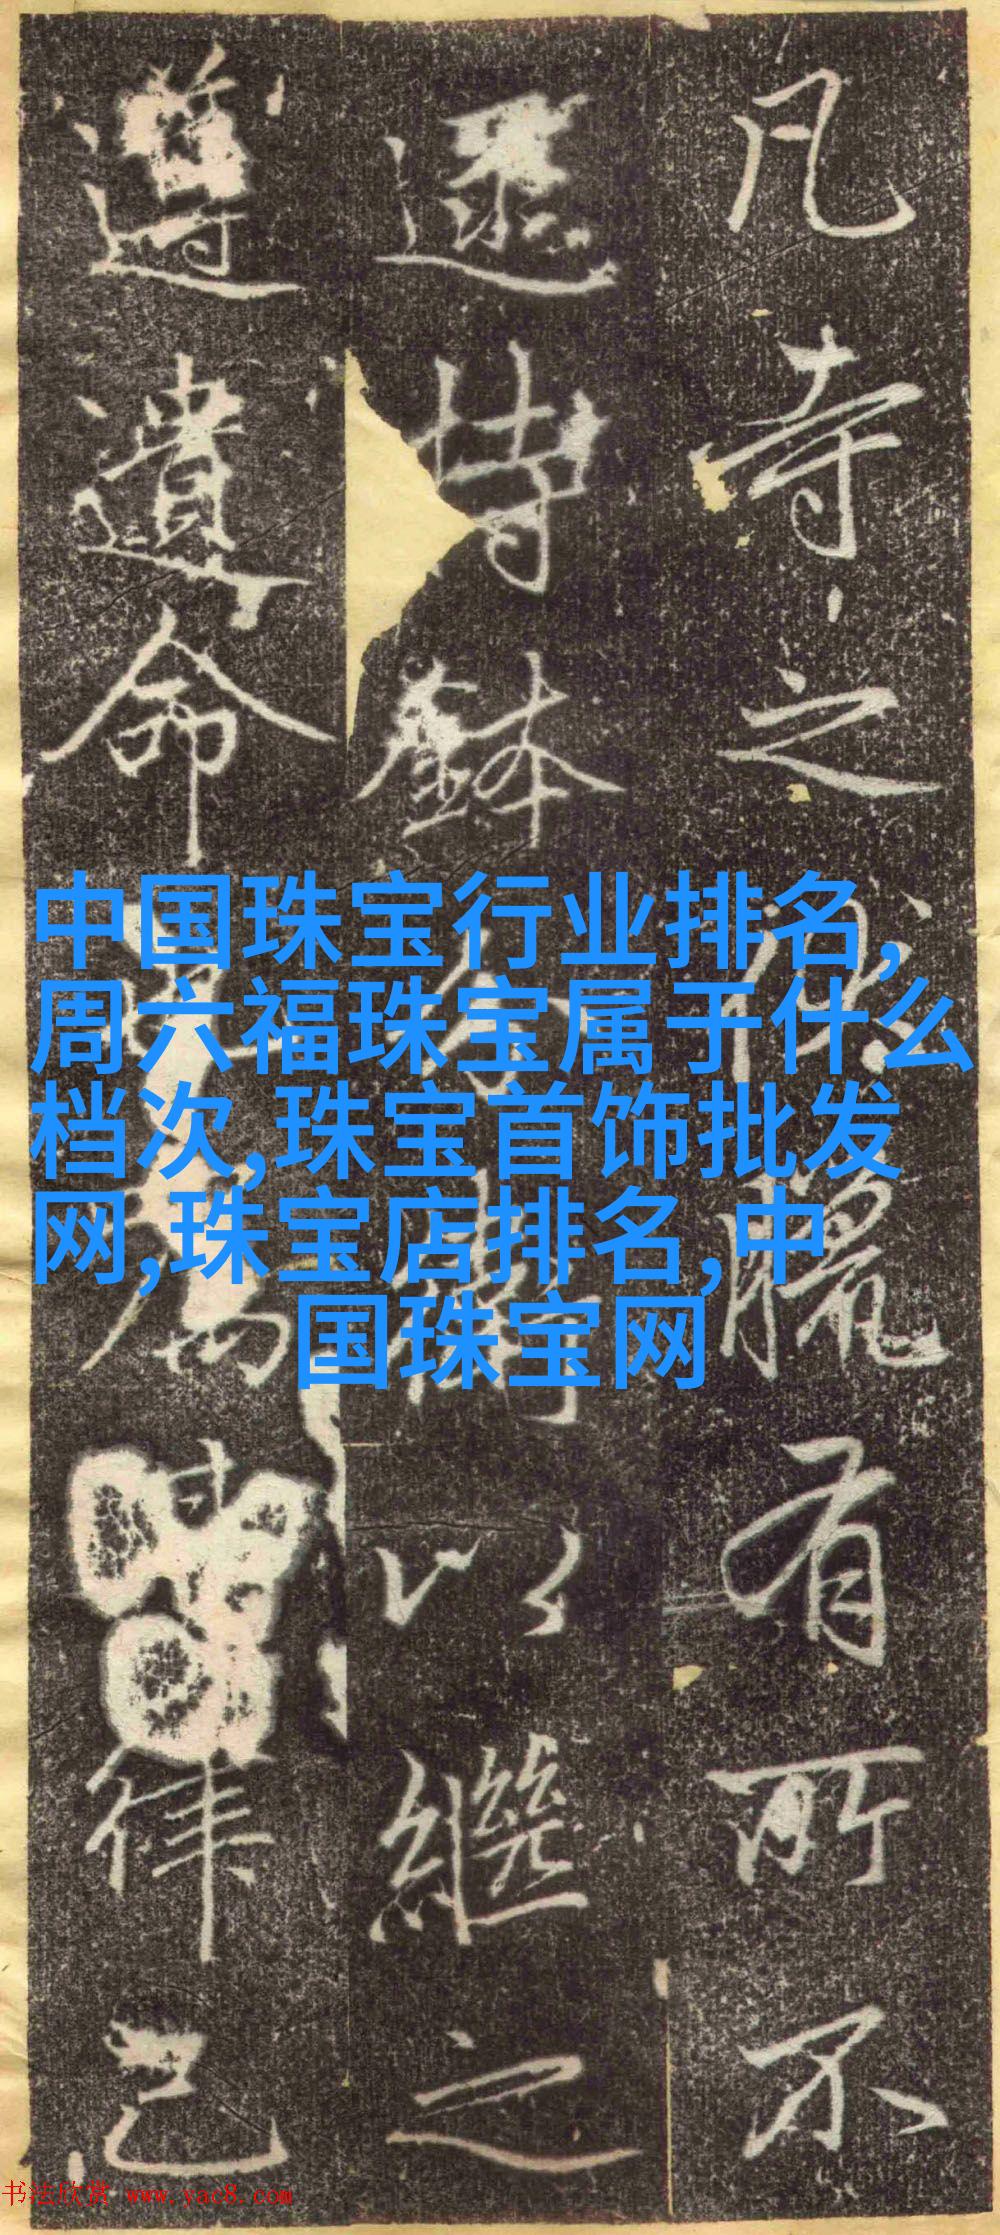 中国珠宝行业排名,
周六福珠宝属于什么
档次,珠宝首饰批发
网,珠宝店排名,中
国珠宝网
凡寺之有所不
持鉢以繼之
遵遺命律己
书法欣赏 www.yac8.com